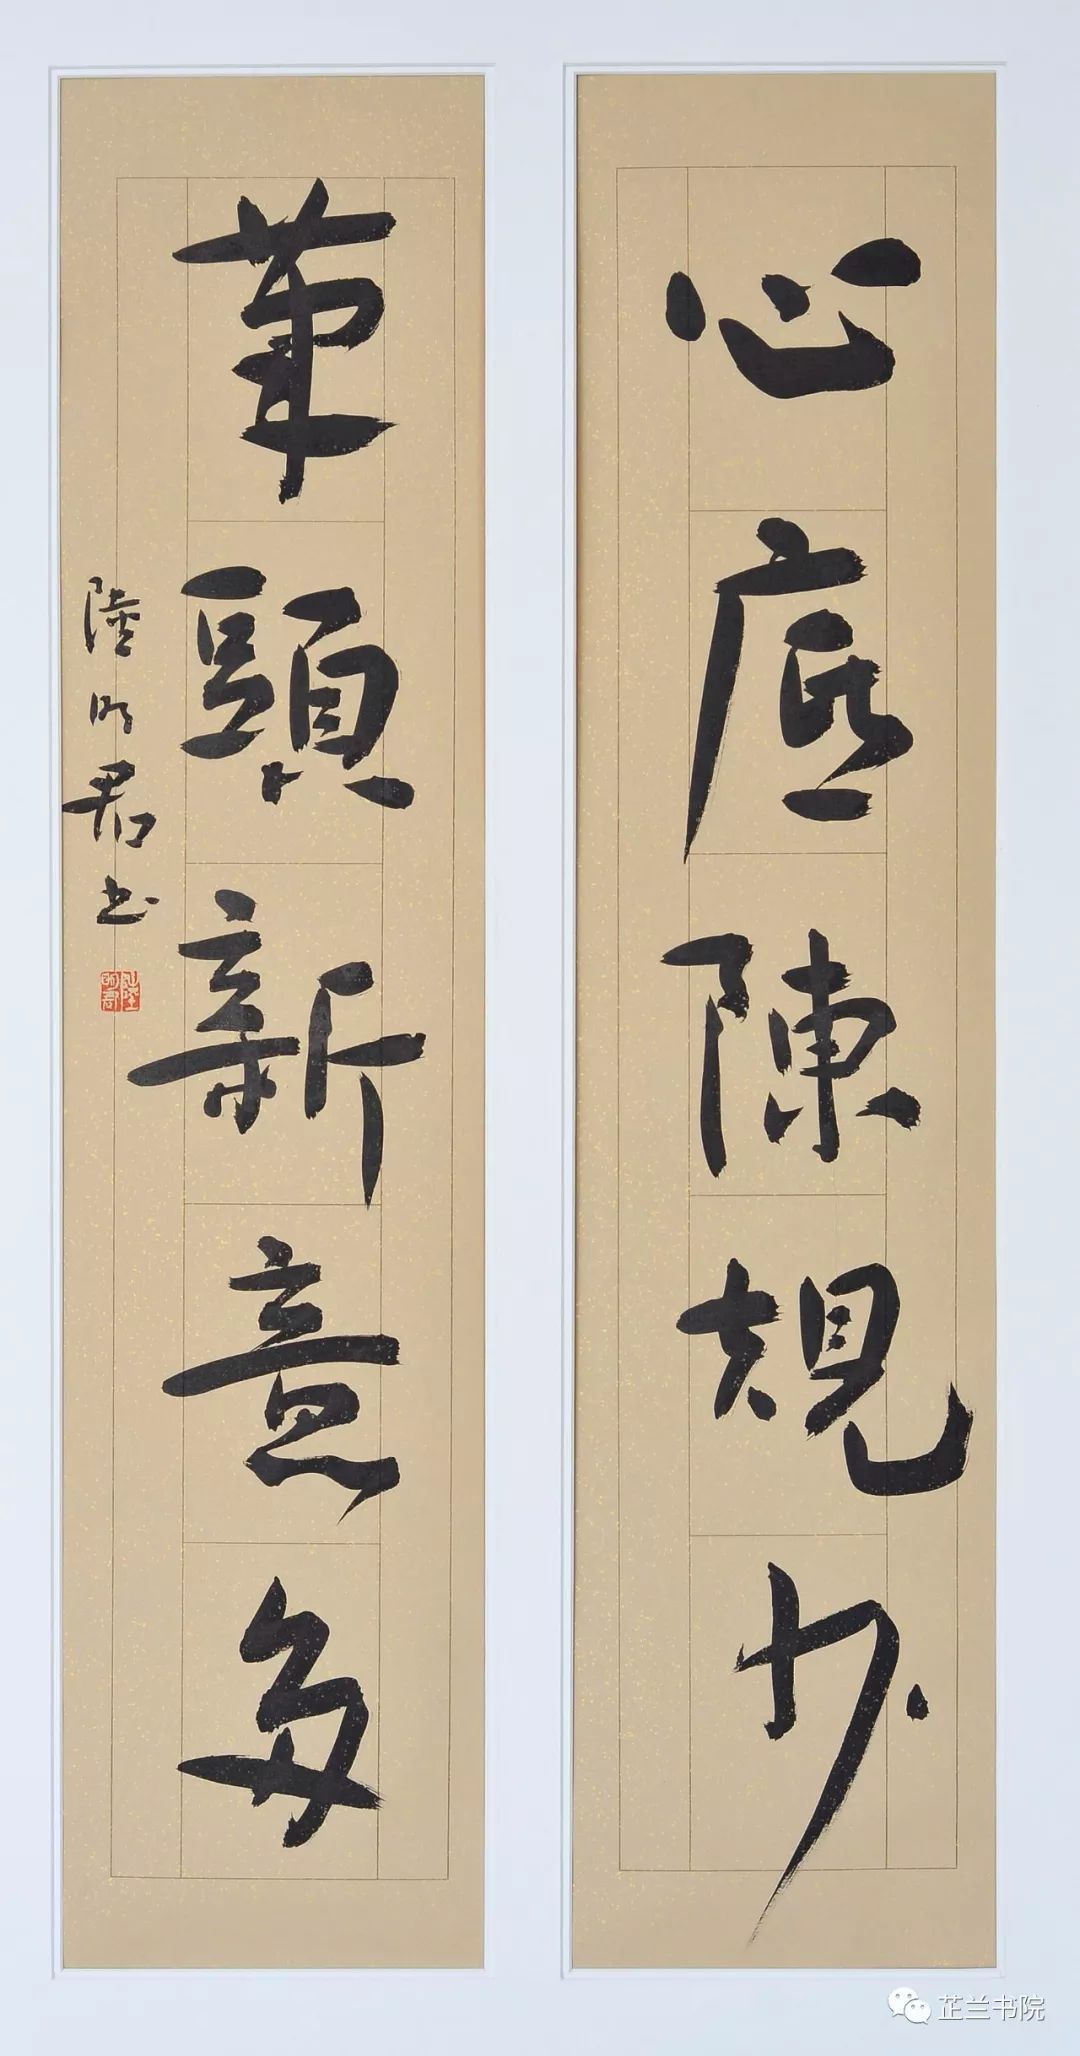 心底陳規少
筆頭新意多
陸明君書
芷兰书院